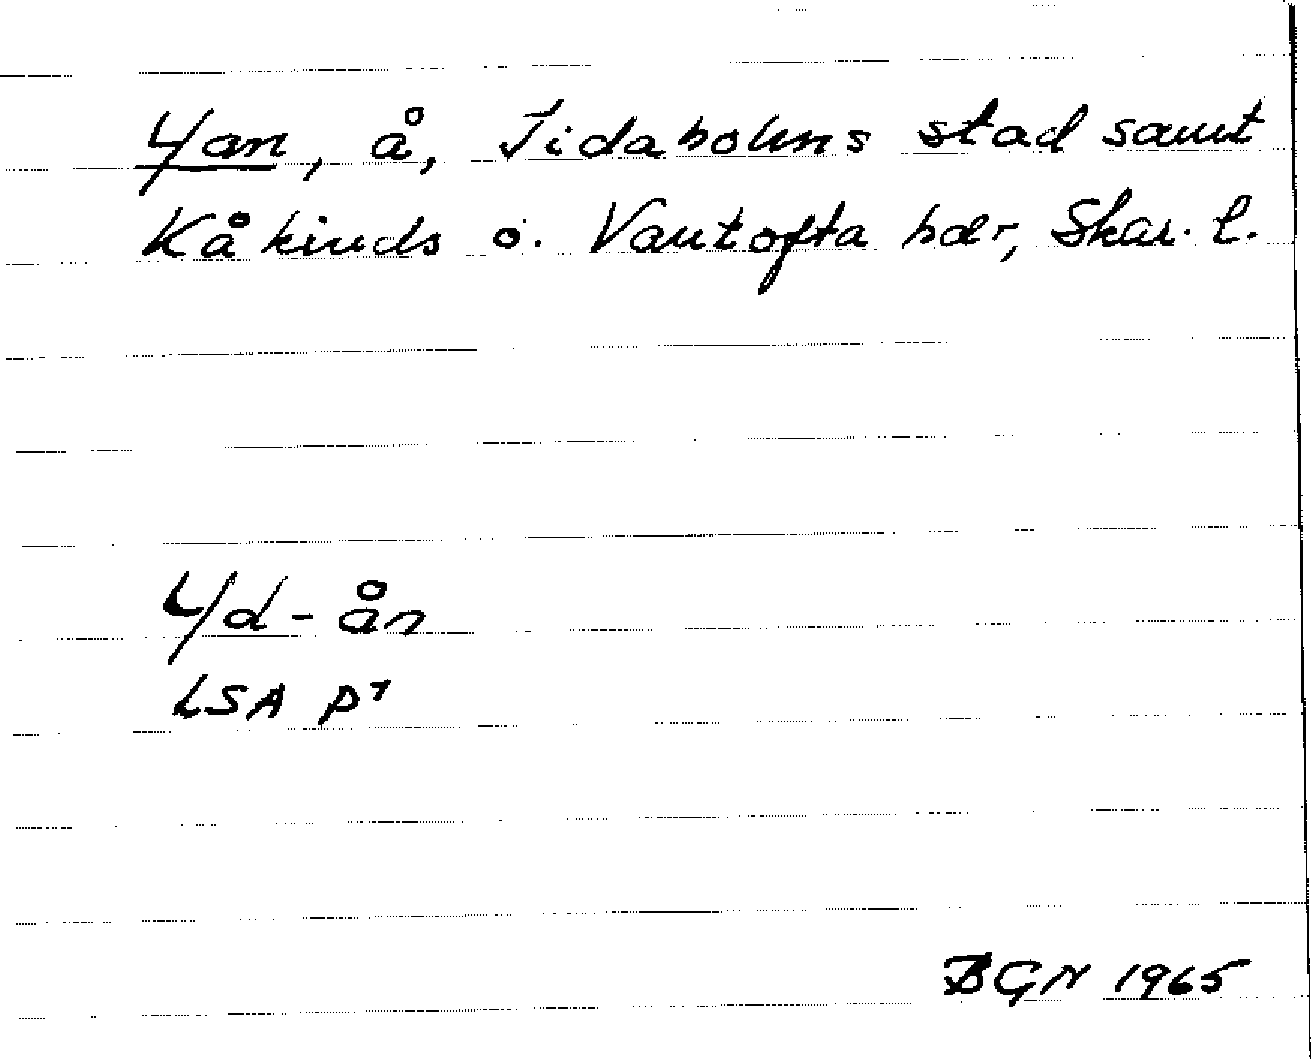 Yan, å, Tidaholms stad samt
Kåkinds o. Vartofta hdr, Skar. l.
Yd-ån
LSA P7
BGN 1965